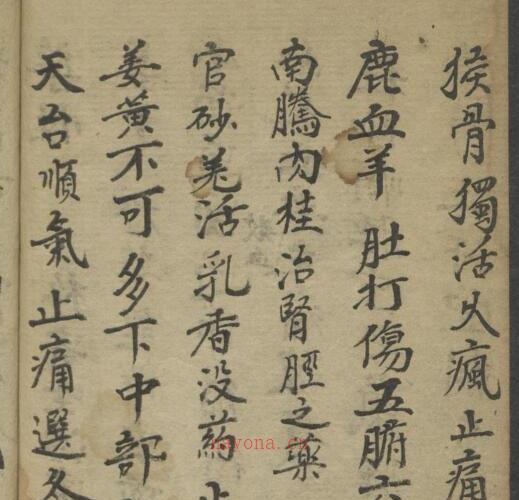 猴骨獨活火瘋止痛
鹿血羊肚打傷五腑六
南騰肉桂治腎脛之藥
官砂羌活乳香没葯止
姜黄不可多下中部
天台順氣止痛選
nayona.cn